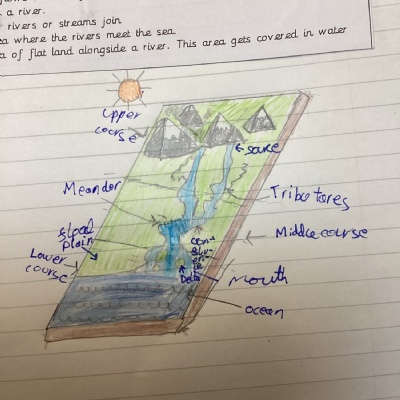 a river.
rivers or streams join
where the rivers meet the sea
of flat land alongside a river. This area gets covered in water
upper
course
source
Meander
Tributares
Middle course
fload
plain
Lower
course
con-
flu-
en-
ce
Delta
mouth
ocean